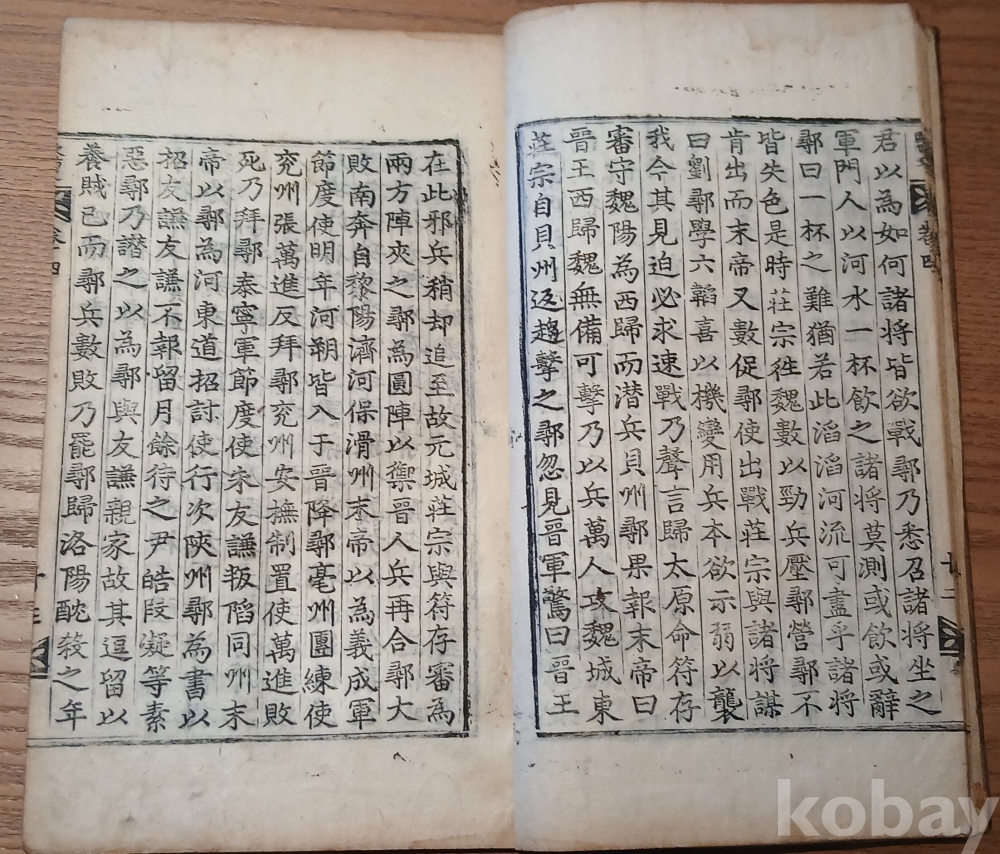 君以為如何諸将皆欲戰鄩乃悉召諸将坐之
軍門人以河水一杯飲之諸将莫測或飲或辭
鄩曰一杯之難猶若此滔滔河流可盡乎諸将
皆失色是時莊宗徃魏數以勁兵壓鄩營鄩不
肯出而末帝又數促鄩使出戰莊宗與諸将謀
曰劉鄩學六韜喜以機變用兵本欲示弱以襲
我今其見迫必求速戰乃聲言歸太原命符存
審守魏陽為西歸而潜兵貝州鄩果報末帝曰
晉王西歸魏無備可擊乃以兵萬人攻魏城東
莊宗自貝州返趨擊之鄩忽見晉軍驚曰晉王
卷四
在此邪兵稍却追至故元城莊宗與符存審為
兩方陣夾之鄩為圓陣以禦晉人兵再合鄩大
敗南奔自黎陽濟河保滑州末帝以為義成軍
節度使明年河朔皆入于晉降鄩亳州團練使
兖州張萬進反拜鄩兖州安撫制置使萬進敗
死乃拜鄩泰寧軍節度使朱友謙叛陷同州末
帝以鄩為河東道招討使行次陝州鄩為書以
招友謙友謙不報留月餘待之尹皓段凝等素
惡鄩乃譖之以為鄩與友謙親家故其逗留以
養賊已而鄩兵數敗乃罷鄩歸洛陽酖殺之年
卷四
kobay